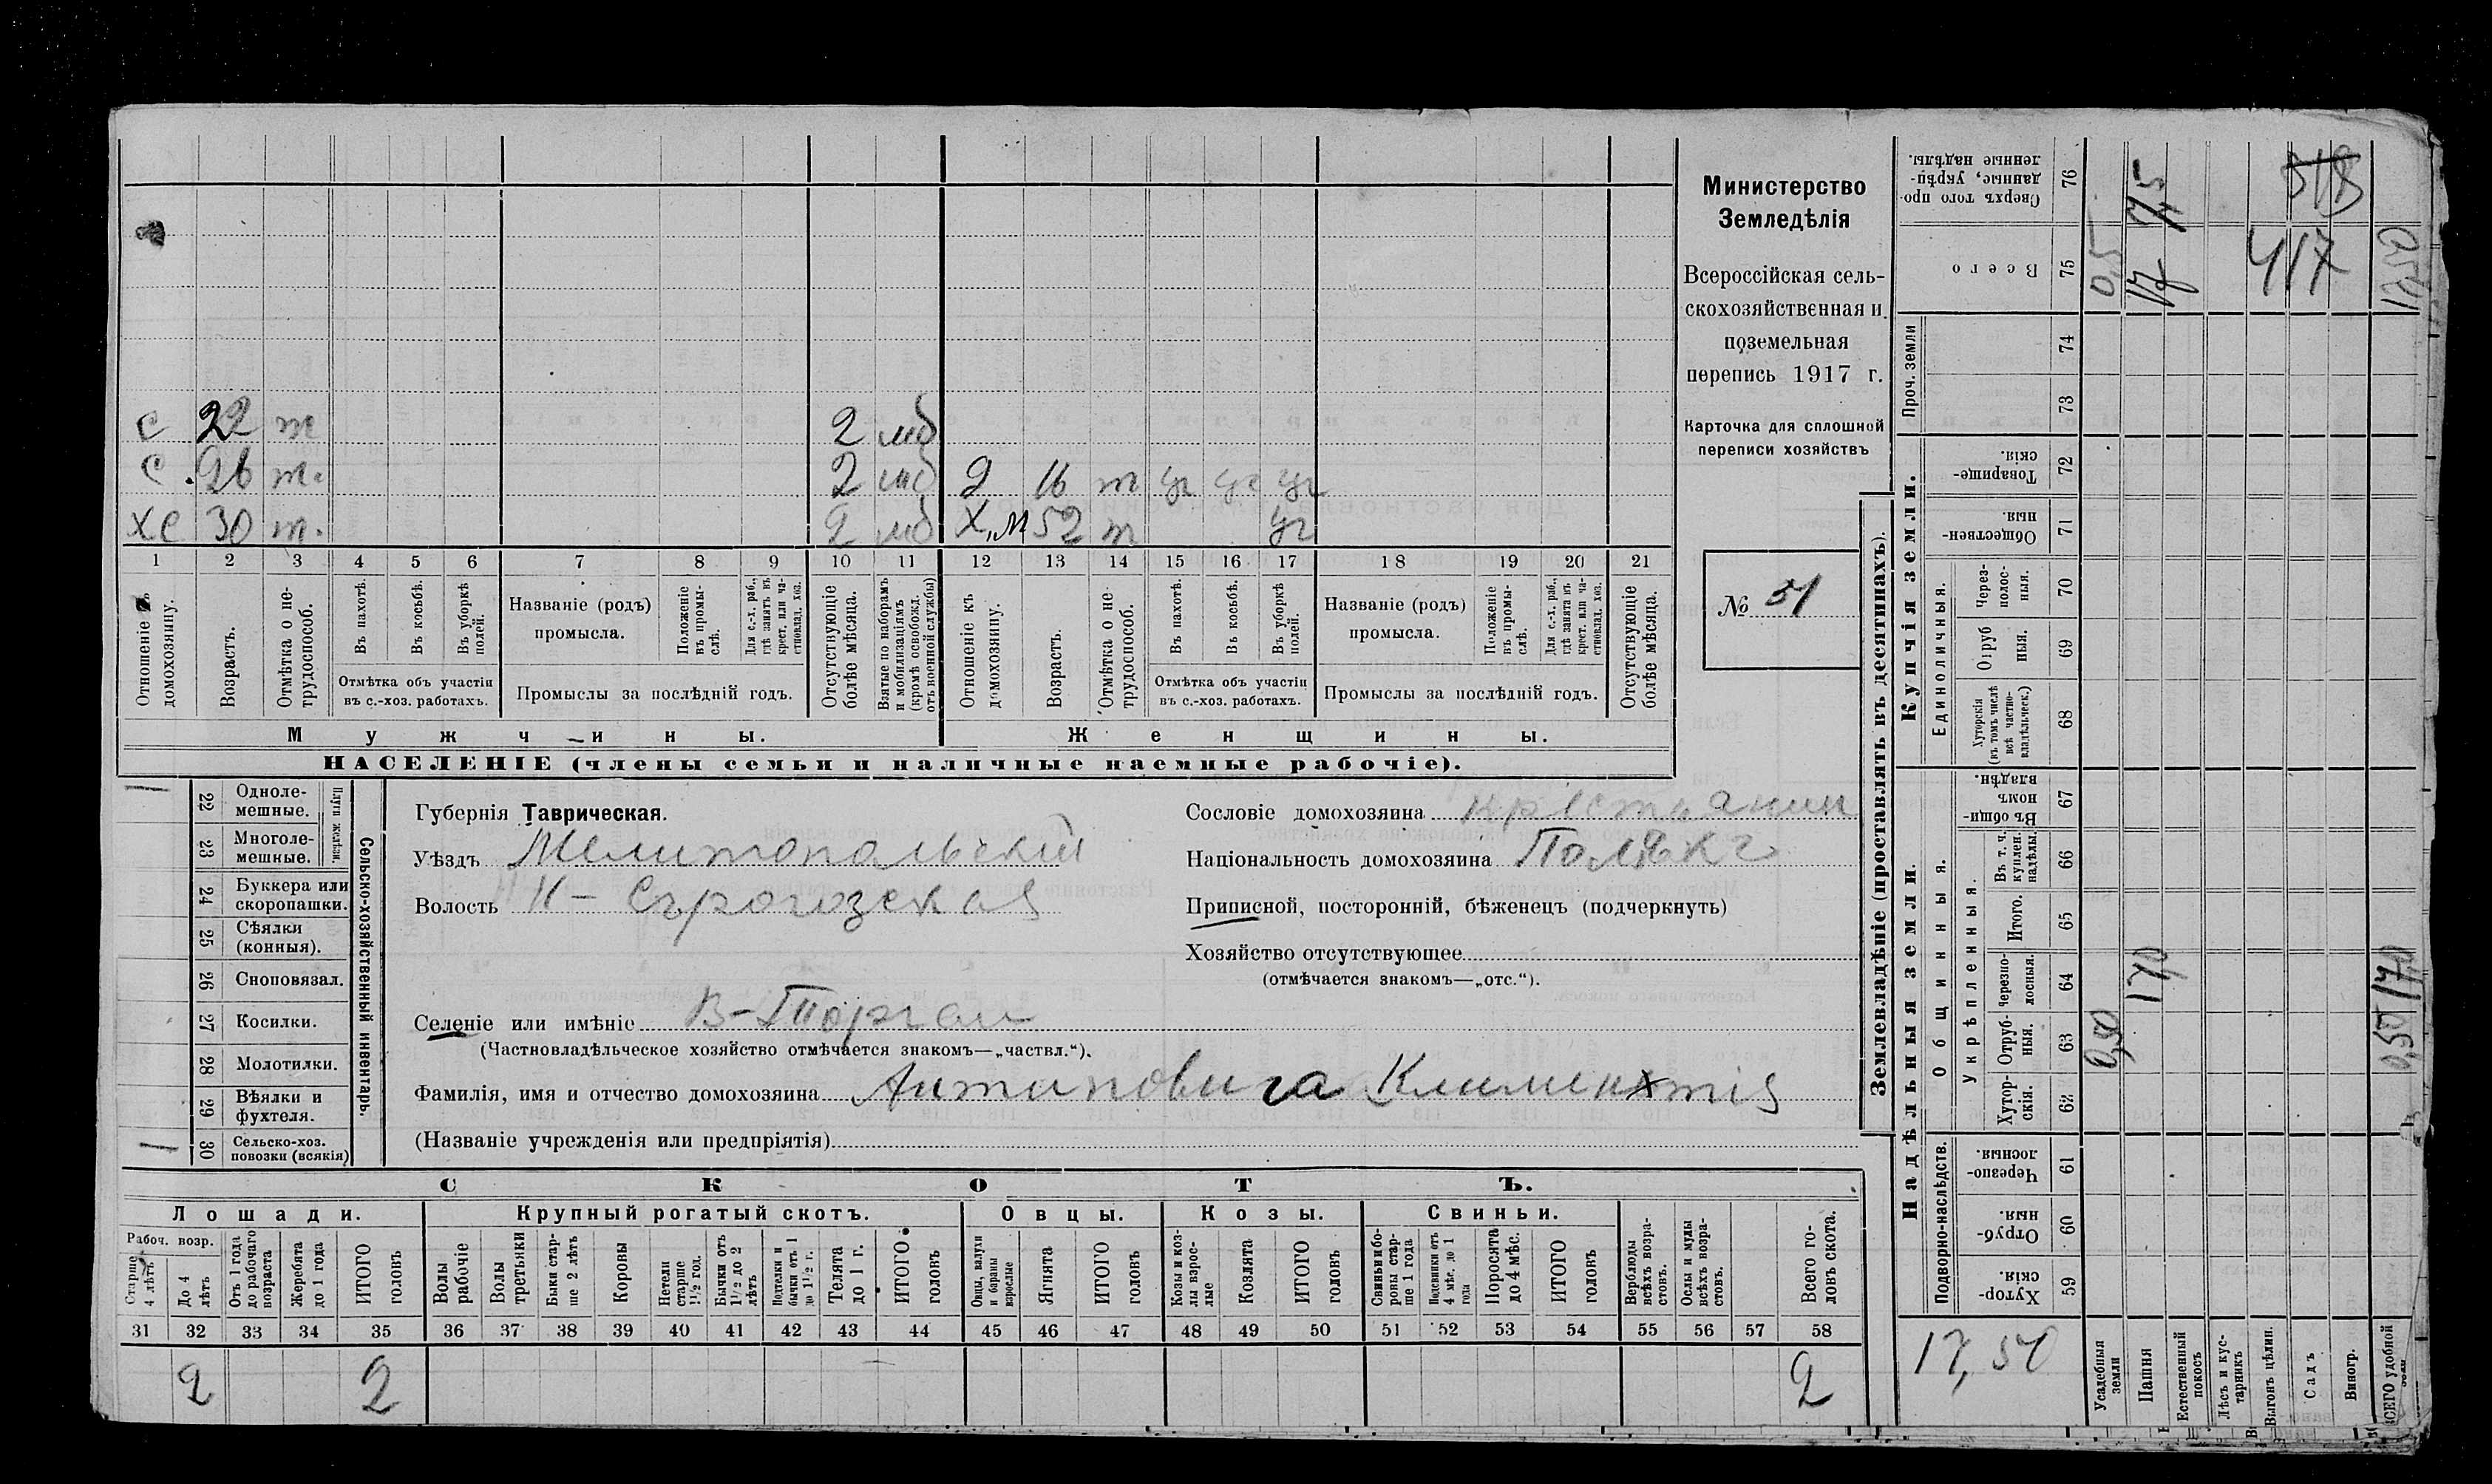 С 22 т 2 мб
С. 26 т. 2 мб Д 16 т уч уч уч
ХС 30 т. 2 мб Х,М 52 т уч
1 2 3 4 5 6 7 8 9 10 11 12 13 14 15 16 17 18 19 20 21
Отношеніе къ домохозяину.
Возрастъ.
Отмѣтка о не-трудоспособ.
Въ пахотѣ.
Въ косьбѣ.
Въ уборкѣ полей.
Отмѣтка объ участіи
въ с.-хоз. работахъ.
Названіе (родъ)
промысла.
Положеніе въ промы-слѣ.
Для с.-х. раб., гдѣ занятъ въ крест. или ча-стновлад. хоз.
Промыслы за послѣдній годъ.
Отсутствующіе болѣе мѣсяца.
Взятые по наборамъ и мобилизаціямъ (кромѣ освобожд. отъ военной службы)
Отношеніе къ домохозяину.
Возрастъ.
Отмѣтка о не-трудоспособ.
Въ пахотѣ.
Въ косьбѣ.
Въ уборкѣ полей.
Отмѣтка объ участіи
въ с.-хоз. работахъ.
Названіе (родъ)
промысла.
Положеніе въ промы-слѣ.
Для с.-х. раб., гдѣ занята въ крест. или ча-стновлад. хоз.
Промыслы за послѣдній годъ.
Отсутствующіе болѣе мѣсяца.
Мужчины.
Женщины.
НАСЕЛЕНІЕ (члены семьи и наличные наемные рабочіе).
Министерство
Земледѣлія
Всероссійская сель-
скохозяйственная и
поземельная
перепись 1917 г.
Карточка для сплошной
переписи хозяйствъ
№ 51
1 22 Одноле-мешные.
23 Многоле-мешные.
Плуги желѣзн.
24 Буккера или скоропашки.
25 Сѣялки (конныя).
26 Сноповязал.
27 Косилки.
28 Молотилки.
29 Вѣялки и фухтеля.
1 30 Сельско-хоз. повозки (всякія)
Сельско-хозяйственный инвентарь.
Губернія Таврическая.
Уѣздъ Мелитопольскій
Волость Н-Сѣрогозская
Сословіе домохозяина крестьянин
Національность домохозяина
Приписной, посторонній, бѣженецъ (подчеркнуть)
Хозяйство отсутствующее
(отмѣчается знакомъ—„отс.“).
Селеніе или имѣніе В-Торгаи
(Частновладѣльческое хозяйство отмѣчается знакомъ—„частвл.“).
Фамилія, имя и отчество домохозяина Антиповича
(Названіе учрежденія или предпріятія)
СКОТЪ.
Лошади.
Крупный рогатый скотъ.
Овцы.
Козы.
Свиньи.
Рабоч. возр.
Старше 4 лѣтъ
До 4 лѣтъ
Отъ 1 года до рабочаго возраста
Жеребята до 1 года
ИТОГО головъ
Волы рабочіе
Волы третьяки
Быки стар-ше 2 лѣтъ
Коровы
Нетели старше 1½ год.
Бычки отъ 1½ до 2 лѣтъ
Подтелки и бычки отъ 1 до 1½ г.
Телята до 1 г.
ИТОГО головъ
Овцы, валухи и бараны взрослые
Ягнята
ИТОГО головъ
Козы и коз-лы взрос-лые
Козлята
ИТОГО головъ
Свиньи и бо-ровы стар-ше 1 года
Подсвинки отъ 4 мѣс. до 1 года
Поросята до 4 мѣс.
ИТОГО головъ
Верблюды всѣхъ возра-стовъ.
Ослы и мулы всѣхъ возра-стовъ.
Всего го-ловъ скота.
31 32 33 34 35 36 37 38 39 40 41 42 43 44 45 46 47 48 49 50 51 52 53 54 55 56 57 58
2 2 2
Землевладѣніе (проставлять въ десятинахъ).
Надѣльныя земли.
Купчія земли.
Проч. земли
Подворно-наслѣдств.
Общинныя.
Укрѣпленныя.
Единоличныя.
Сверхъ того про-данные, укрѣп-ленные надѣлы. 76
Всего 75
74
73
Товарище-скія. 72
Обществен-ныя. 71
Через-полос-ныя. 70
Отруб-ныя. 69
Хуторскія (въ томъ числѣ всѣ частно-владѣльческ.) 68
Въ общин-номъ владѣн. 67
Въ т. ч. куплен. надѣлы 66
Итого. 65
Черезпо-лосныя. 64
Отруб-ныя. 63
Хутор-скія. 62
Черезпо-лосныя. 61
Отруб-ныя. 60
Хутор-скія. 59
0,5 17 417
0,50 17,0 0,50 17,0
17,50
Усадебныя земли
Пашня
Естественный покосъ
Лѣсъ и кус-тарникъ
Выгонъ цѣлин.
Садъ
Виногр.
ВСЕГО удобной